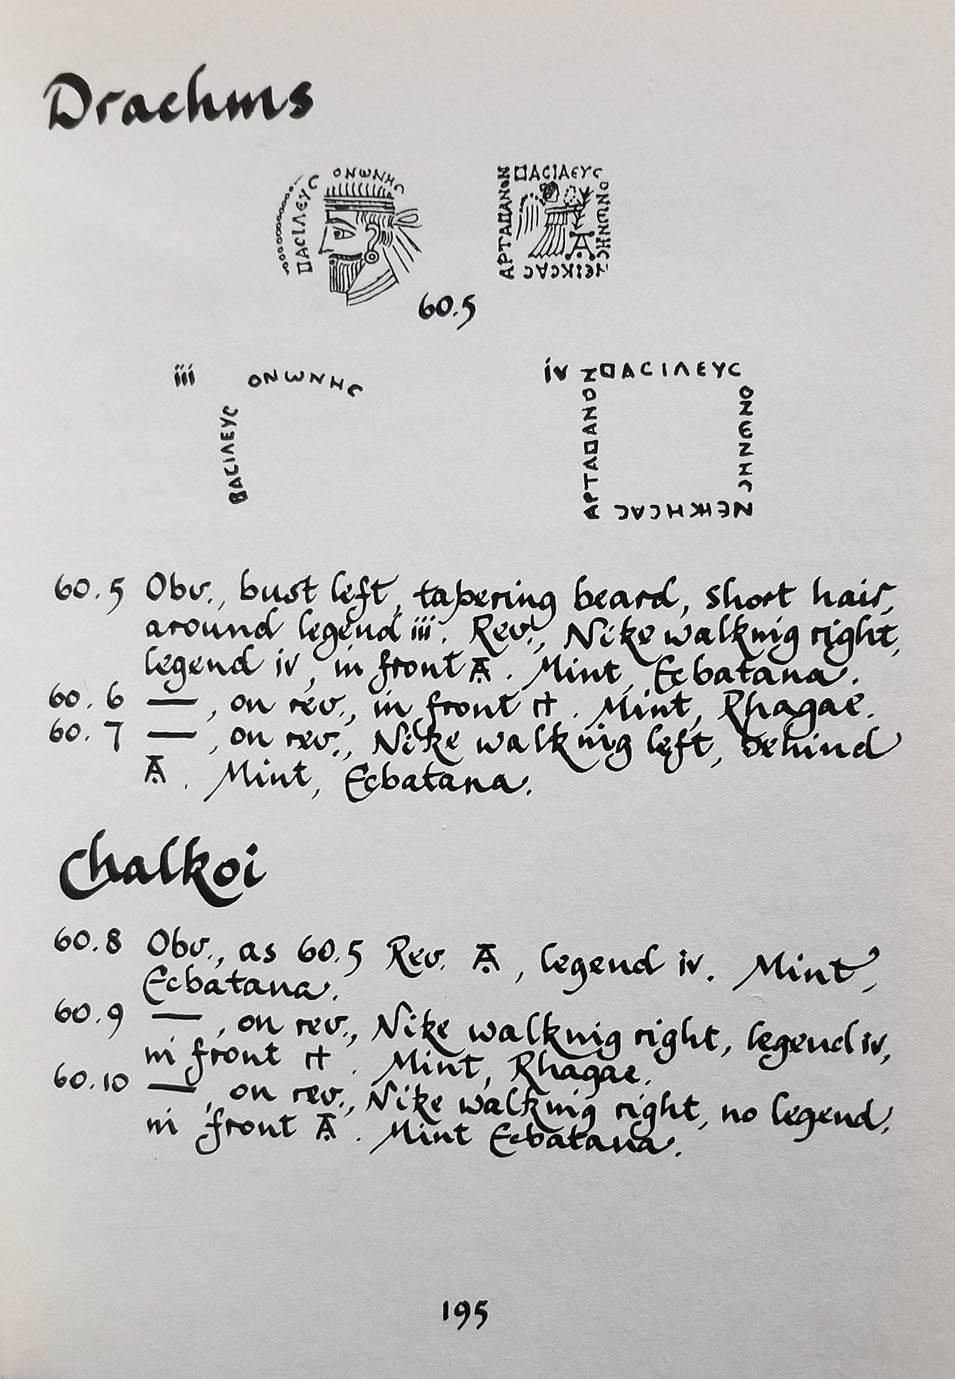 Drachms
ΟΝΩΝΗϹ
ΠΑϹΙΛΕΥϹ
ΠΑϹΙΛΕΥϹ
ΑΡΤΑΠΑΝΟΝ
60.5
iii
ΟΝΩΝΗϹ
ΒΑϹΙΛΕΥϹ
iv
ΠΑϹΙΛΕΥϹ
ΟΝΩΝΗϹ
ΑΡΤΑΠΑΝΟΝ
60.5 Obv., bust left, tapering beard, short hair,
around legend iii. Rev., Nike walking right,
legend iv, in front Ā. Mint, Ecbatana.
60.6 —, on rev., in front. Mint, Rhagae.
60.7 —, on rev., Nike walking left, behind
Ā. Mint, Ecbatana.
Chalkoi
60.8 Obv., as 60.5 Rev. Ā, legend iv. Mint,
Ecbatana.
60.9 —, on rev., Nike walking right, legend iv,
in front. Mint, Rhagae.
60.10 —, on rev., Nike walking right, no legend,
in front Ā. Mint Ecbatana.
195